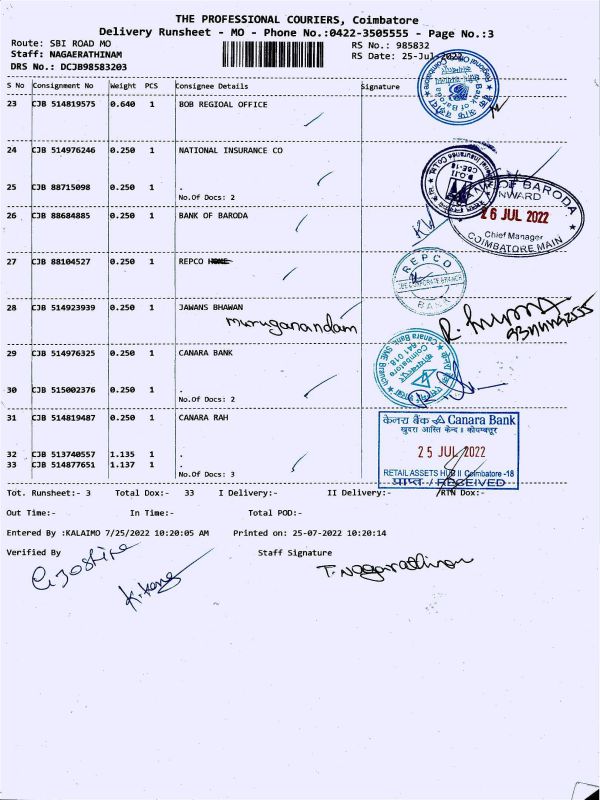 THE PROFESSIONAL COURIERS, Coimbatore
Delivery Runsheet - MO - Phone No.:0422-3505555 - Page No.:3
Route: SBI ROAD MO
RS No.: 985832
Staff: NAGAERATHINAM
RS Date: 25-Jul-2022
DRS No.: DCJB98583203
S No Consignment No Weight PCS Consignee Details Signature
23 CJB 514819575 0.640 1 BOB REGIOAL OFFICE
Regional Office Coimbatore
Bank of Baroda
24 CJB 514976246 0.250 1 NATIONAL INSURANCE CO
25 CJB 88715098 0.250 1 .
No.Of Docs: 2
26 CJB 88684885 0.250 1 BANK OF BARODA
BANK OF BARODA
INWARD
26 JUL 2022
Chief Manager
COIMBATORE MAIN
27 CJB 88104527 0.250 1 REPCO HOME
REPCO
CBE CORPORATE BRANCH
BANK
28 CJB 514923939 0.250 1 JAWANS BHAWAN
Muruganandam
29 CJB 514976325 0.250 1 CANARA BANK
Canara Bank, SME Branch
Coimbatore
641 018
30 CJB 515002376 0.250 1 .
No.Of Docs: 2
31 CJB 514819487 0.250 1 CANARA RAH
केनरा बैंक Canara Bank
खुदरा आस्ति केन्द्र । कोयम्बत्तूर
25 JUL 2022
RETAIL ASSETS HUB II Coimbatore -18
प्राप्त / RECEIVED
32 CJB 513740557 1.135 1 .
33 CJB 514877651 1.137 1 .
No.Of Docs: 3
Tot. Runsheet:- 3 Total Dox:- 33 I Delivery:- II Delivery:- /RTN Dox:-
Out Time:- In Time:- Total POD:-
Entered By :KALAIMO 7/25/2022 10:20:05 AM Printed on: 25-07-2022 10:20:14
Verified By Staff Signature
T. Nagarathinam